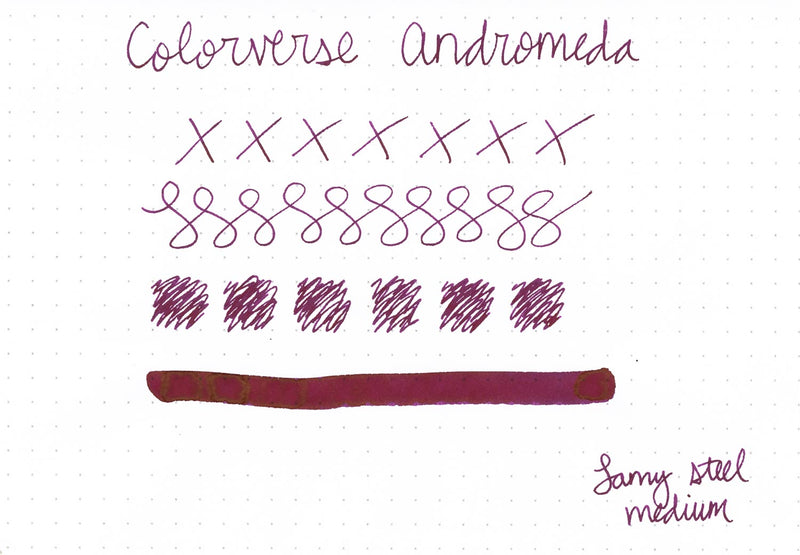 Colorverse Andromeda
x x x x x x x
Lamy steel
medium